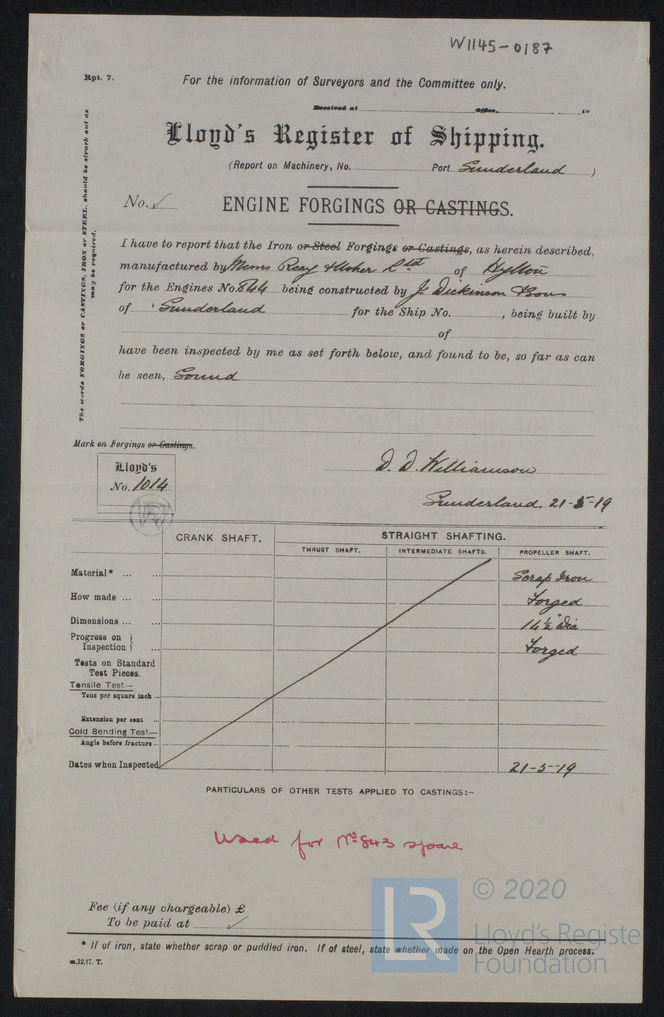 W1145-0187
Rpt. 7.
For the information of Surveyors and the Committee only.
Received at Office, 19
Lloyd's Register of Shipping.
(Report on Machinery, No. Port Sunderland )
No. ✓
ENGINE FORGINGS OR CASTINGS.
The words FORGINGS or CASTINGS, IRON or STEEL, should be struck out as
may be required.
I have to report that the Iron or Steel Forgings or Castings, as herein described,
manufactured by Messrs Reay & Usher Ltd of Hylton
for the Engines No. 844 being constructed by J. Dickinson & Sons
of Sunderland for the Ship No. , being built by
of
have been inspected by me as set forth below, and found to be, so far as can
be seen, Sound
Mark on Forgings or Castings.
Lloyd's
No. 1014
D. D. Williamson
Sunderland, 21-5-19
CRANK SHAFT. STRAIGHT SHAFTING.
THRUST SHAFT. INTERMEDIATE SHAFTS. PROPELLER SHAFT.
Material* ... ... Scrap Iron
How made ... ... Forged
Dimensions ... ... 14½" Dia
Progress on
Inspection } ... Forged
Tests on Standard
Test Pieces.
Tensile Test—
Tons per square inch ...
Extension per cent ...
Cold Bending Test—
Angle before fracture ...
Dates when Inspected 21-5-19
PARTICULARS OF OTHER TESTS APPLIED TO CASTINGS:-
Used for No 843 spare
Fee (if any chargeable) £
To be paid at ✓
* If of iron, state whether scrap or puddled iron. If of steel, state whether made on the Open Hearth process.
m,12,17. T.
LR
© 2020
Lloyd's Register
Foundation